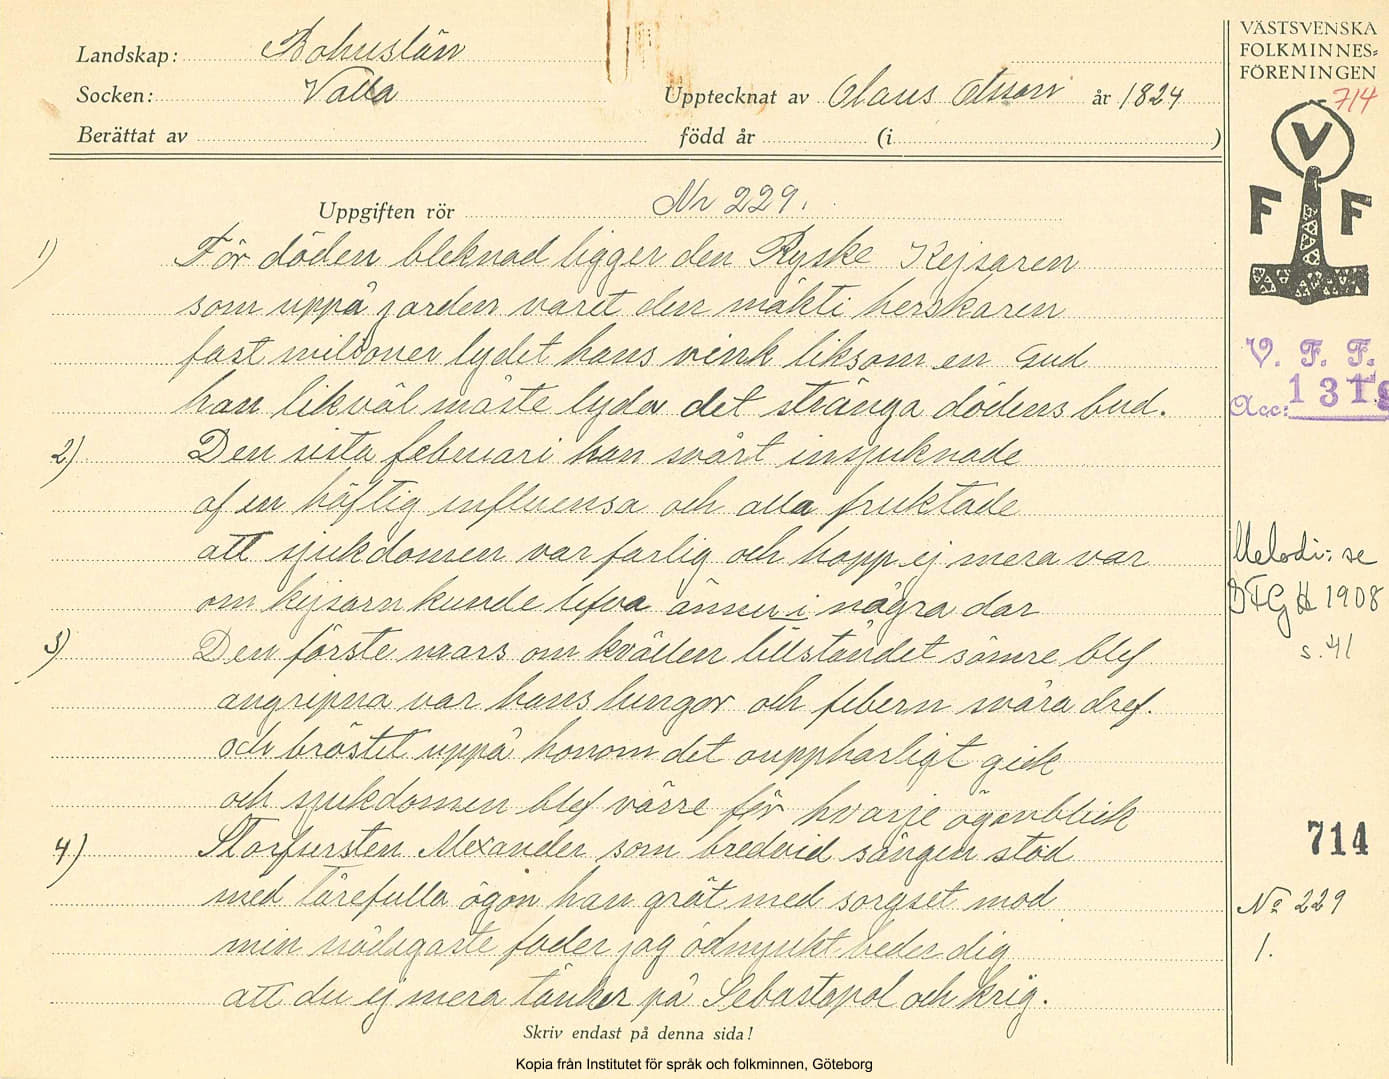 Landskap: Bohuslän
Socken: Valla
Upptecknat av Olaus Olsson år 1824
Berättat av
född år (i )
Uppgiften rör Nr 229.
1) För döden bleknad ligger den Ryske Kejsaren
som uppå jorden varit den mäkti herskaren
fast milioner lydet hans vink liksom en Gud
han likväl måste lyda det stränga dödens bud.
2) Den sista februari han svårt insjuknade
af en häftig influensa och alla fruktade
att sjukdomen var farlig och hopp ej mera var
om kejsarn kunde lefva ännu i några dar
3) Den förste mars om kvällen tillståndet sämre blef
angripna var hans lungor och febern svåra dref.
och bröstet uppå honom det oupphörligt gick
och sjukdomen blef värre för hvarje ögonblick
4) Storfursten Alexander som bredvid sängen stod
med tårefulla ögon han grät med sorgset mod
min nådigaste fader jag ödmjukt beder dig
att du ej mera tänker på Sebastopol och krig.
Skriv endast på denna sida!
Kopia från Institutet för språk och folkminnen, Göteborg
VÄSTSVENSKA
FOLKMINNES-
FÖRENINGEN
714
V
F F
V. F. F.
Acc: 1319
Melodi: se
BFGH 1908
s. 41
714
No 229
1.